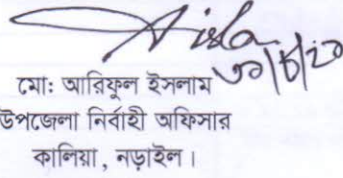 মো: আরিফুল ইসলাম
উপজেলা নির্বাহী অফিসার
কালিয়া, নড়াইল।